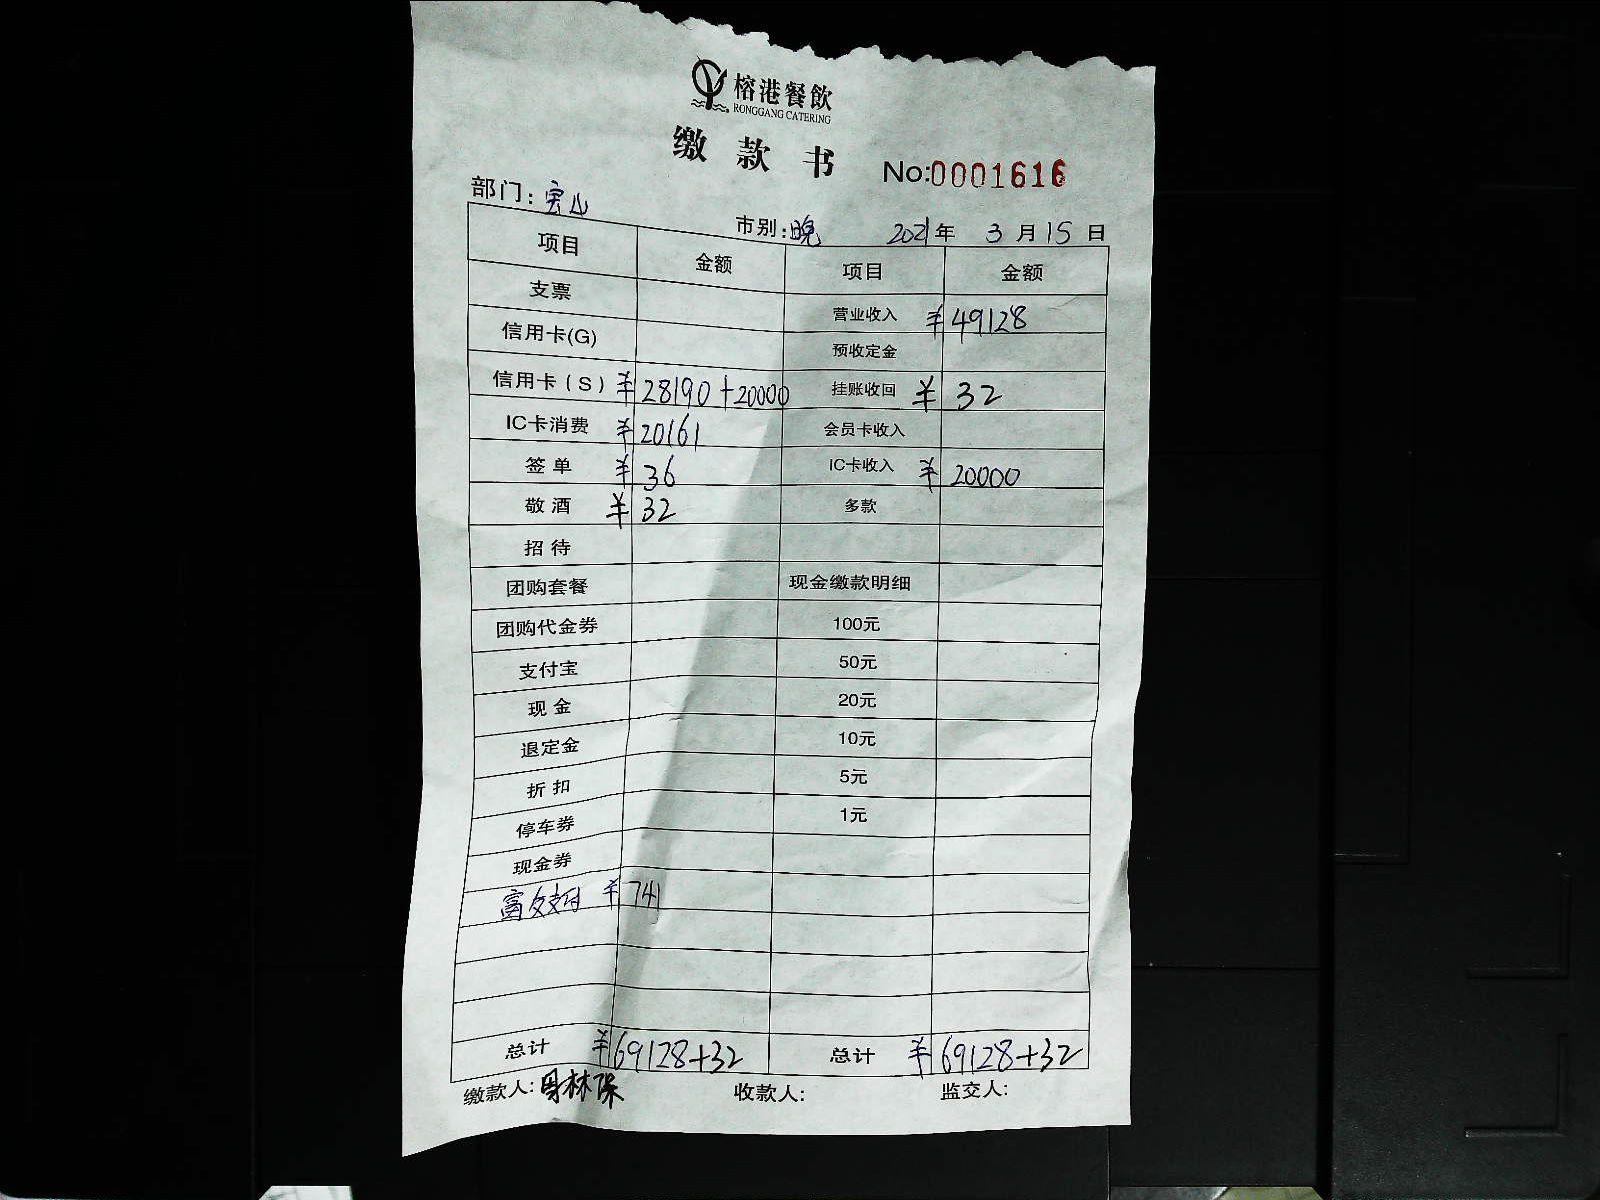 榕港餐飲
RONGGANG CATERING
缴款书
No:0001616
部门:宝山
市别:晚 2021年 3月15日
项目 金额 项目 金额
支票 营业收入 ¥49128
信用卡(G) 预收定金
信用卡(S) ¥28190+20000 挂账收回 ¥32
IC卡消费 ¥20161 会员卡收入
签单 ¥36 IC卡收入 ¥20000
敬酒 ¥32 多款
招待
团购套餐 现金缴款明细
团购代金券 100元
支付宝 50元
现金 20元
退定金 10元
折扣 5元
停车券 1元
现金券
支付 ¥741
总计 ¥69128+32 总计 ¥69128+32
缴款人: 林保 收款人: 监交人: